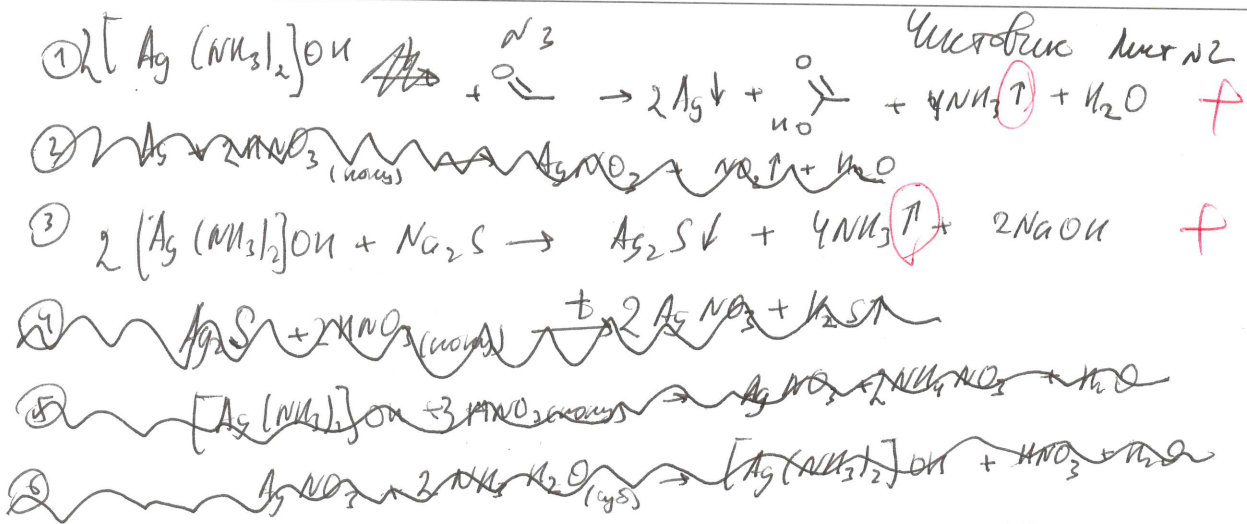 N3 Чистовик Лист N2
① 2[Ag(NH₃)₂]OH + O → 2Ag↓ + O HO + 4NH₃↑ + H₂O +
② Ag + 2HNO₃ (конц) → AgNO₃ + NO₂↑ + H₂O
③ 2[Ag(NH₃)₂]OH + Na₂S → Ag₂S↓ + 4NH₃↑ + 2NaOH +
④ Ag₂S + 2HNO₃ (конц) t→ 2AgNO₃ + H₂S↑
⑤ [Ag(NH₃)₂]OH + 3HNO₃ (конц) → AgNO₃ + 2NH₄NO₃ + H₂O
⑥ AgNO₃ + 2NH₃·H₂O → [Ag(NH₃)₂]OH + HNO₃ + H₂O